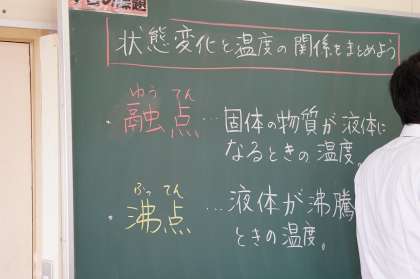 状態変化と温度の関係をまとめよう
ゆう てん
・融点…固体の物質が液体に
なるときの温度。
ふっ てん
・沸点…液体が沸騰
ときの温度。